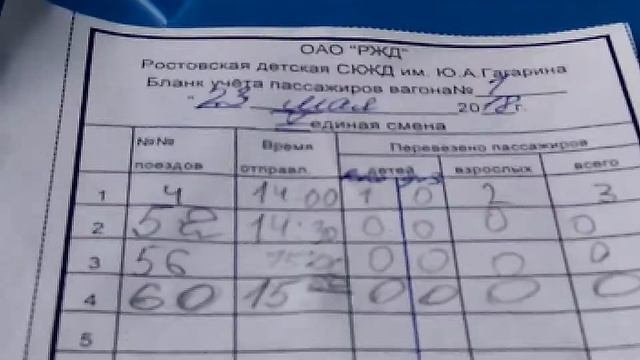 ОАО "РЖД"
Ростовская детская СКЖД им. Ю.А.Гагарина
Бланк учёта пассажиров вагона№ 1
"23 мая 2018г.
единая смена
№№ поездов Время отправл. Перевезено пассажиров
детей взрослых всего
1 4 14 00 1 0 2 3
2 58 14:30 0 0 0 0
3 56 0 0 0 0
4 60 15 0 0 0 0
5